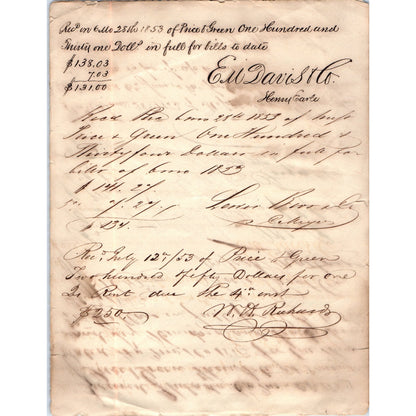 Recd in 6 Mo 28th 1853 of Price & Green One Hundred and
Thirty one Dolls in full for bills to date
$138.03
7.03
$131.00
E M Davis & Co.
Henry Earle
Recd 28th 1853 of
Price & Green One Hundred &
Thirty four Dollars in full for
bill of 1853
$ 141.27
7.27
$ 134
Recd July 12th/53 of Price & Green
Two hundred & fifty Dollars for one
Qr Rent due the 4th
$250